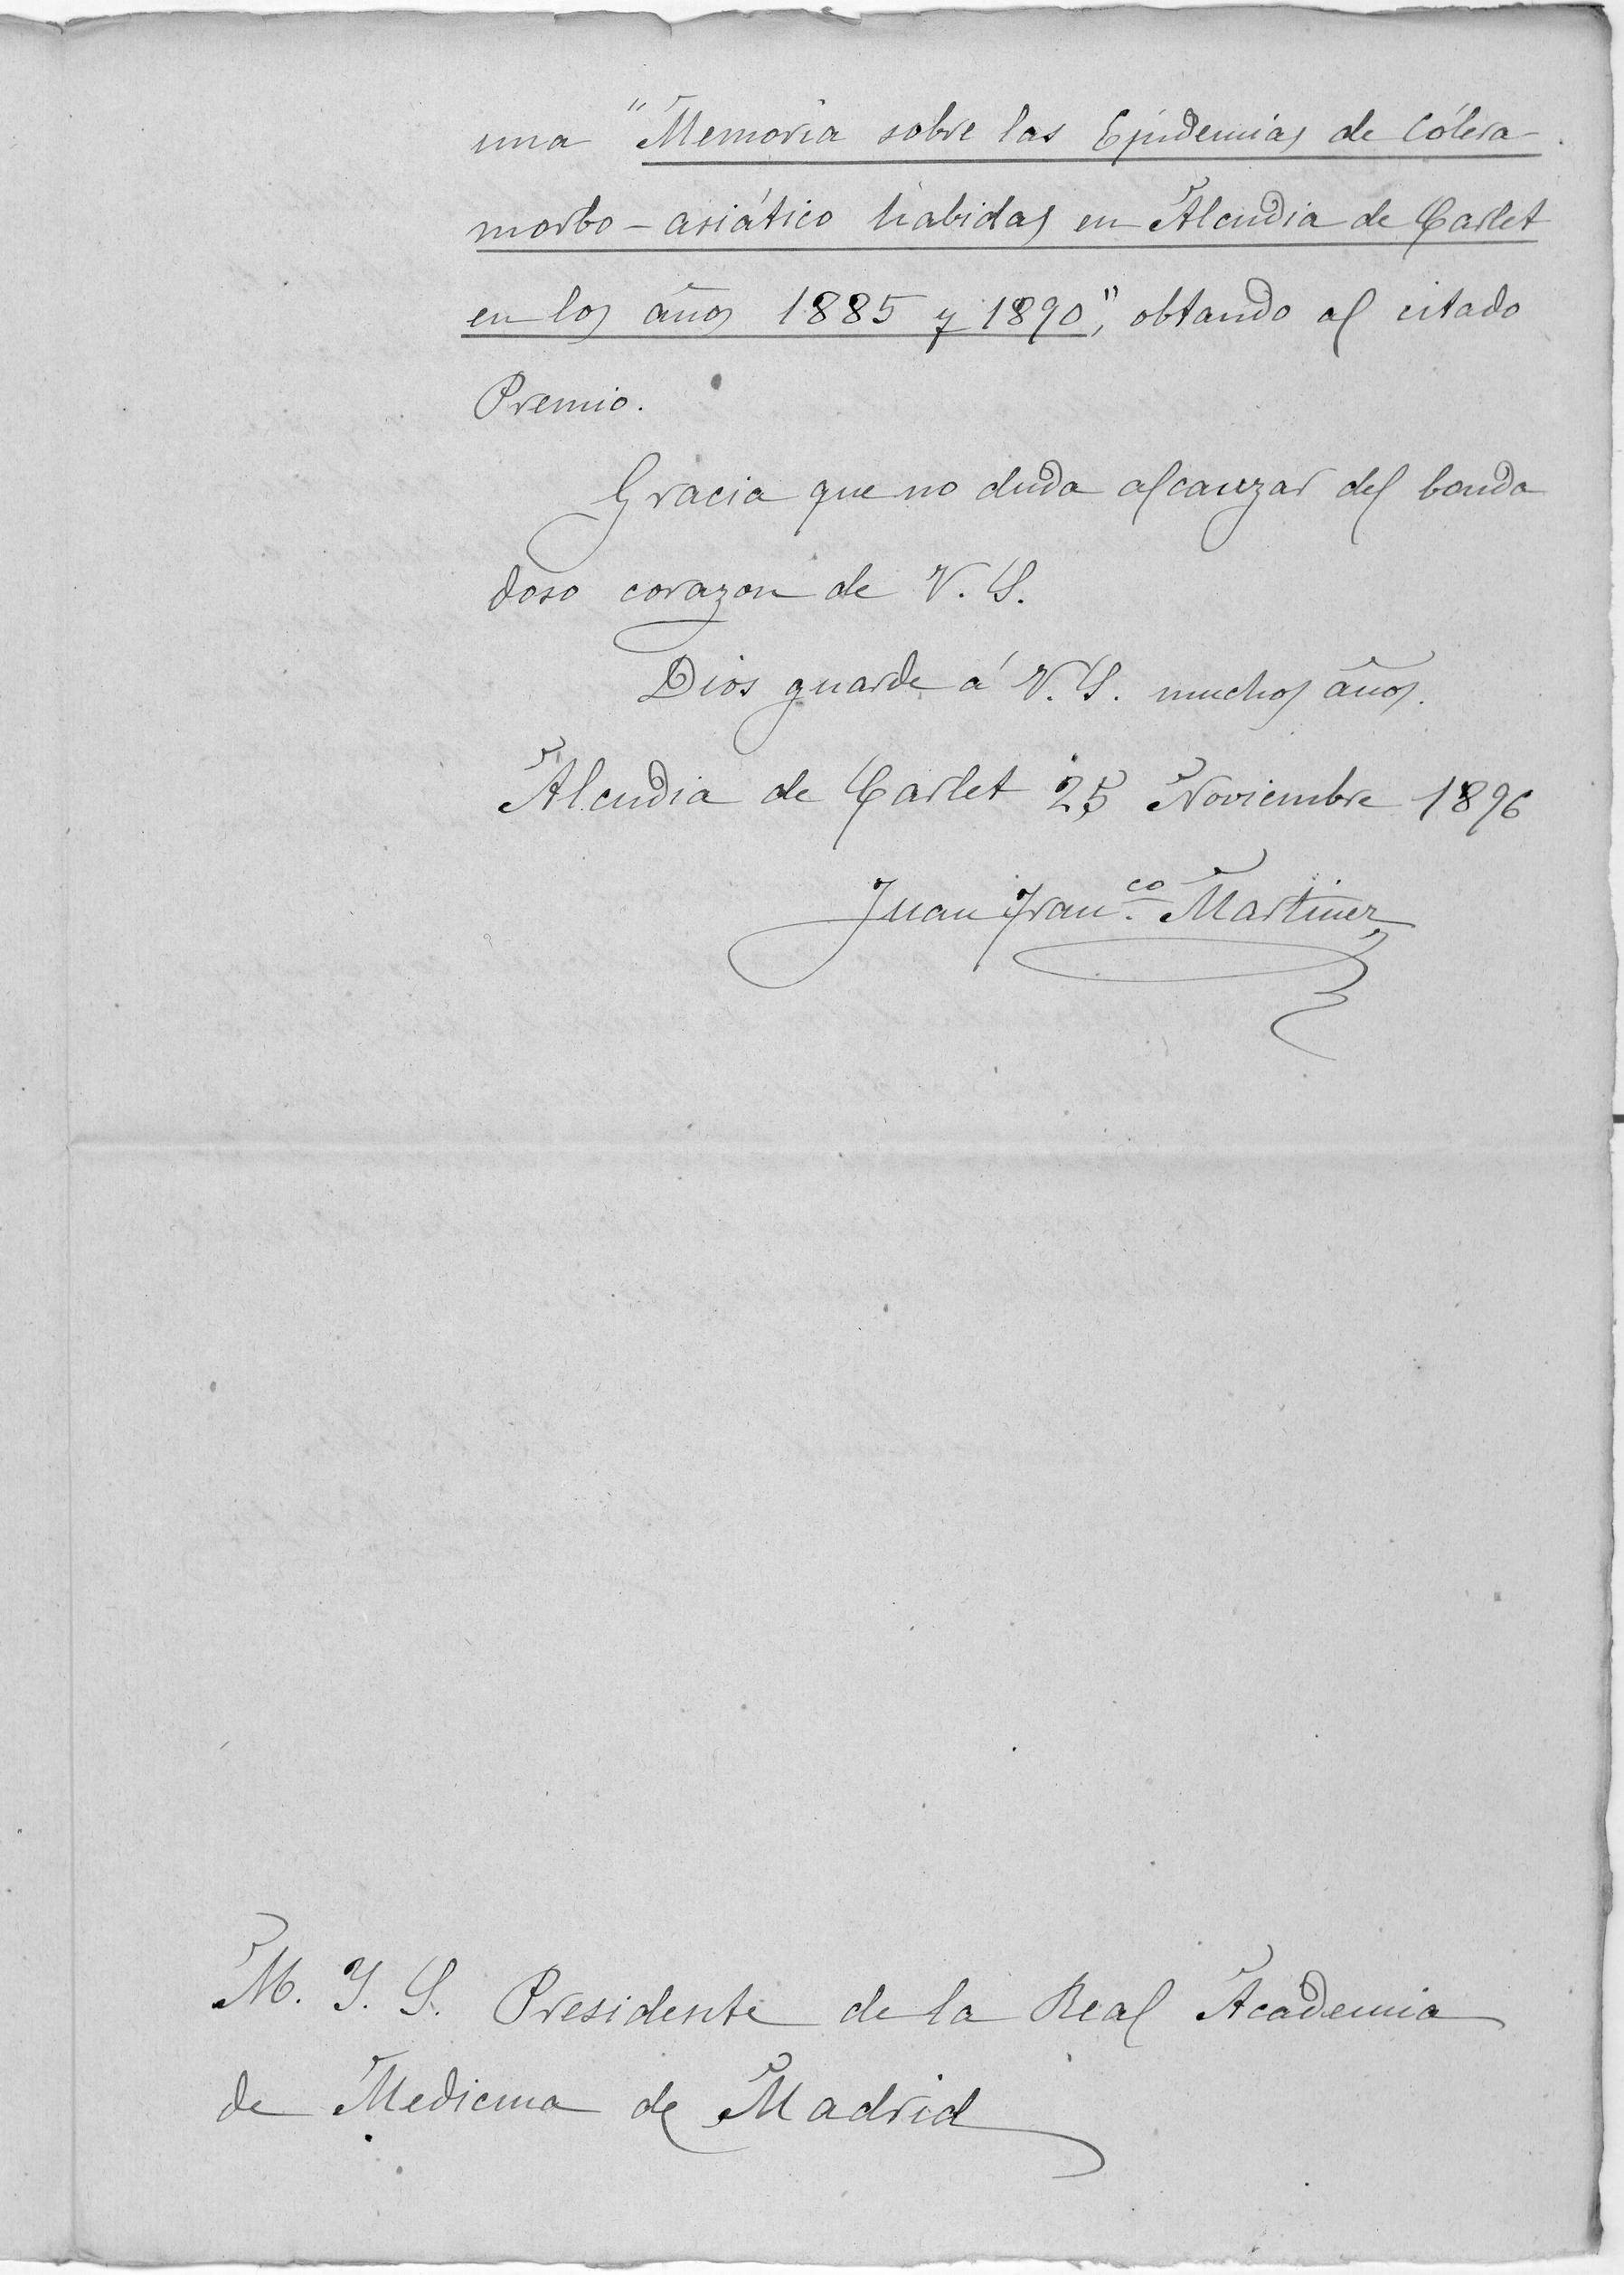 una "Memoria sobre las Epidemias de Cólera
morbo-asiático habidas en Alcudia de Carlet
en los años 1885 y 1890", obtando al citado
Premio.
Gracia que no duda alcanzar del bonda
doso corazon de V. S.
Dios guarde á V. S. muchos años.
Alcudia de Carlet 25 Noviembre 1896
Juan Fran.co Martinez
M. Y. S. Presidente de la Real Academia
de Medicina de Madrid